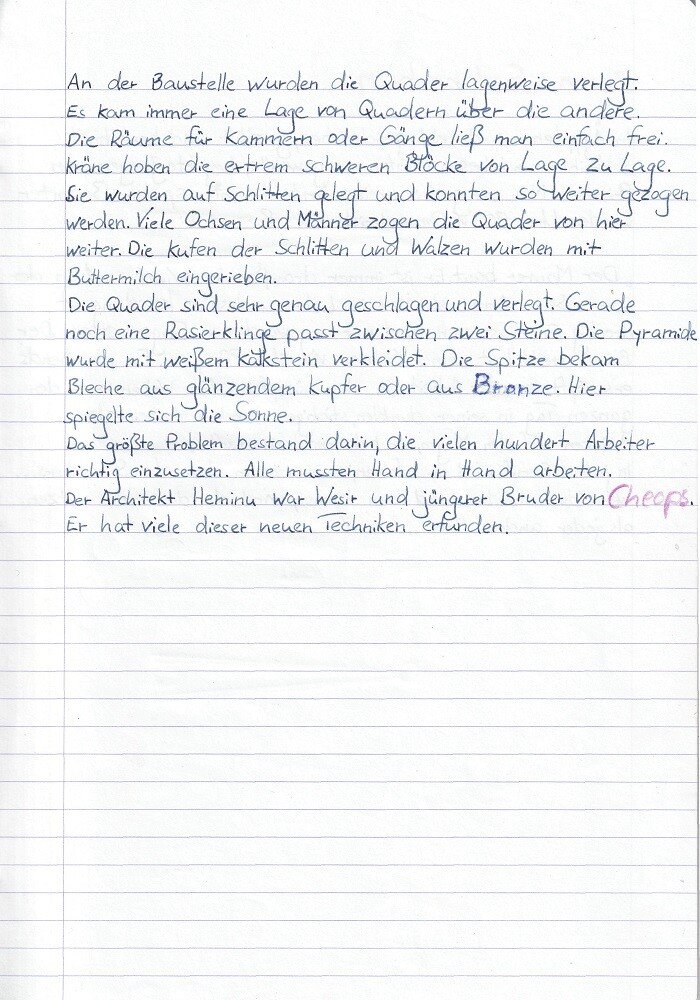 An der Baustelle wurden die Quader lagenweise verlegt.
Es kam immer eine Lage von Quadern über die andere.
Die Räume für Kammern oder Gänge ließ man einfach frei.
Kräne hoben die extrem schweren Blöcke von Lage zu Lage.
Sie wurden auf Schlitten gelegt und konnten so weiter gezogen
werden. Viele Ochsen und Männer zogen die Quader von hier
weiter. Die Kufen der Schlitten und Walzen wurden mit
Buttermilch eingerieben.
Die Quader sind sehr genau geschlagen und verlegt. Gerade
noch eine Rasierklinge passt zwischen zwei Steine. Die Pyramide
wurde mit weißem Kalkstein verkleidet. Die Spitze bekam
Bleche aus glänzendem Kupfer oder aus Bronze. Hier
spiegelte sich die Sonne.
Das größte Problem bestand darin, die vielen hundert Arbeiter
richtig einzusetzen. Alle mussten Hand in Hand arbeiten.
Der Architekt Heminu war Wesir und jüngerer Bruder von Cheops.
Er hat viele dieser neuen Techniken erfunden.